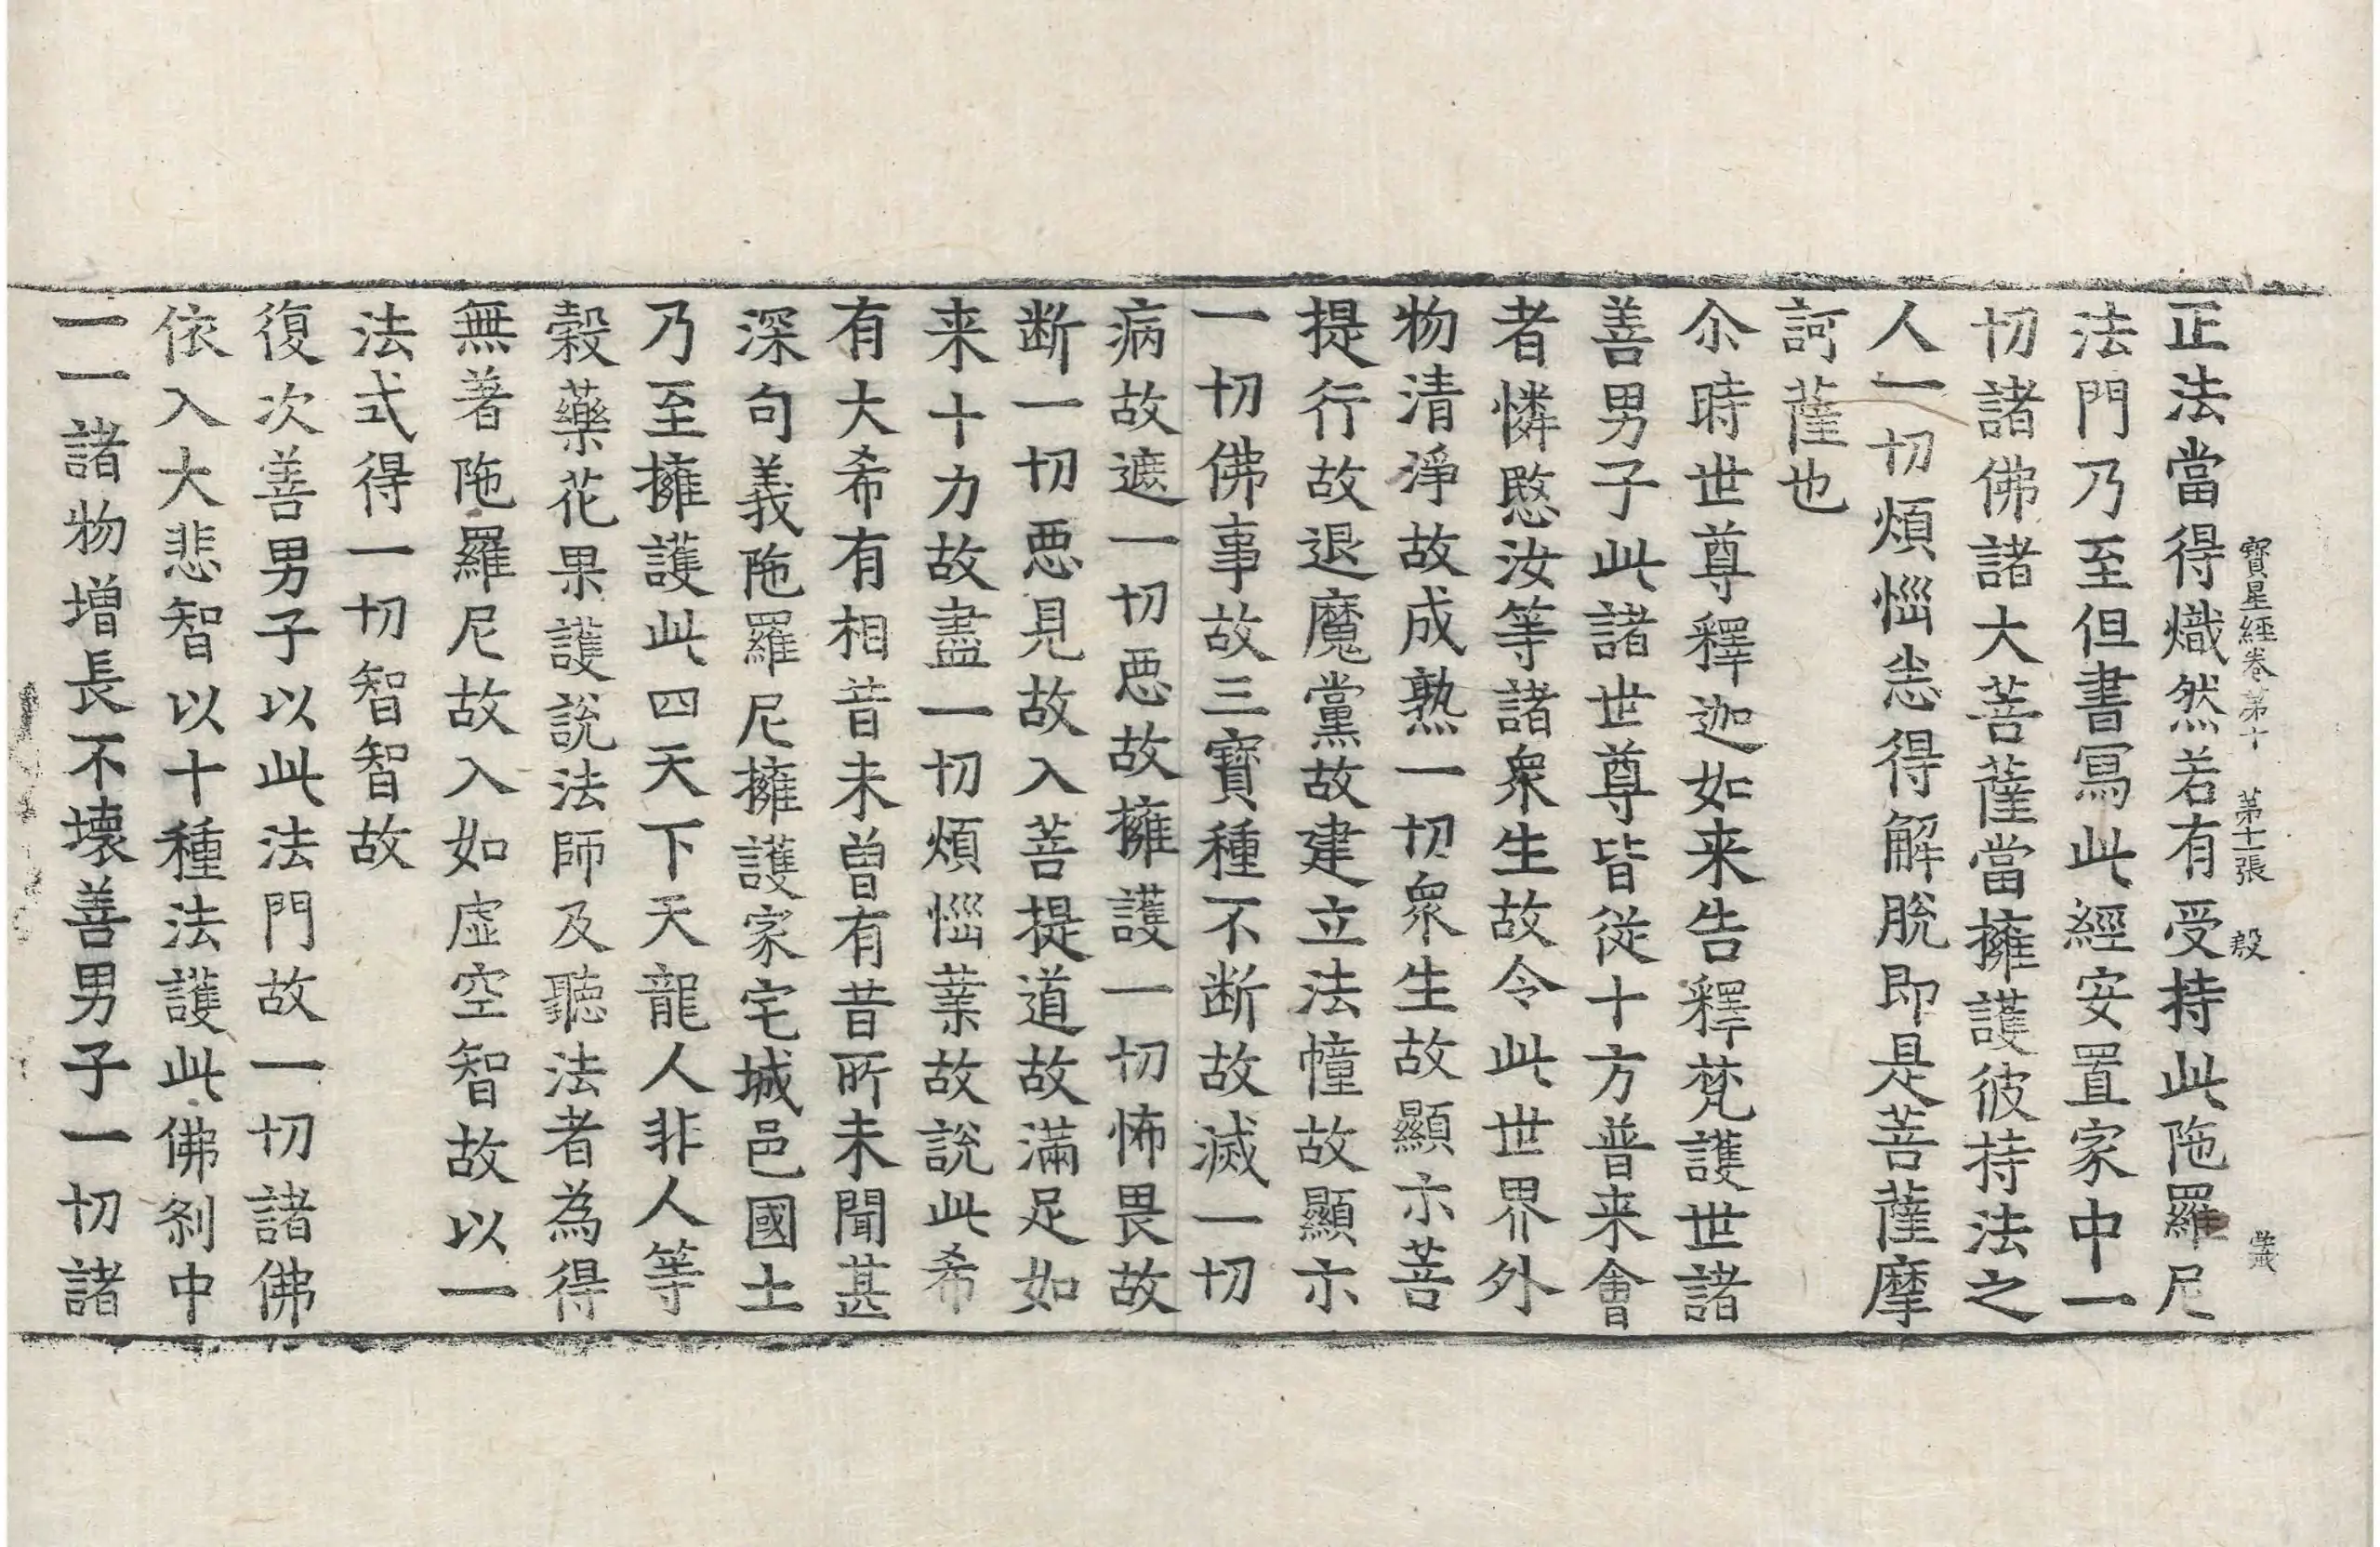 寳星經卷苐十　苐十一張　殷
正法當得熾然若有受持此陁羅尼
法門乃至但書冩此經安置家中一
切諸佛諸大菩薩當擁護彼持法之
人一切煩惱恙得解脫即是菩薩摩
訶薩也
尒時世尊釋迦如来告釋梵護世諸
善男子此諸世尊皆從十方普来會
者憐愍汝等諸衆生故令此世界外
物清淨故成熟一切衆生故顯示菩
提行故退魔黨故建立法幢故顯示
一切佛事故三寶種不断故滅一切
病故遮一切惡故擁護一切怖畏故
断一切惡見故入菩提道故滿足如
来十力故盡一切煩惱業故說此希
有大希有相昔未曾有昔所未聞甚
深句義陁羅尼擁護家宅城邑國土
乃至擁護此四天下天龍人非人等
穀藥花果護說法師及聽法者為得
無著陁羅尼故入如虛空智故以一
法式得一切智智故
復次善男子以此法門故一切諸佛
依入大悲智以十種法護此佛剎中
一一諸物增長不壞善男子一切諸